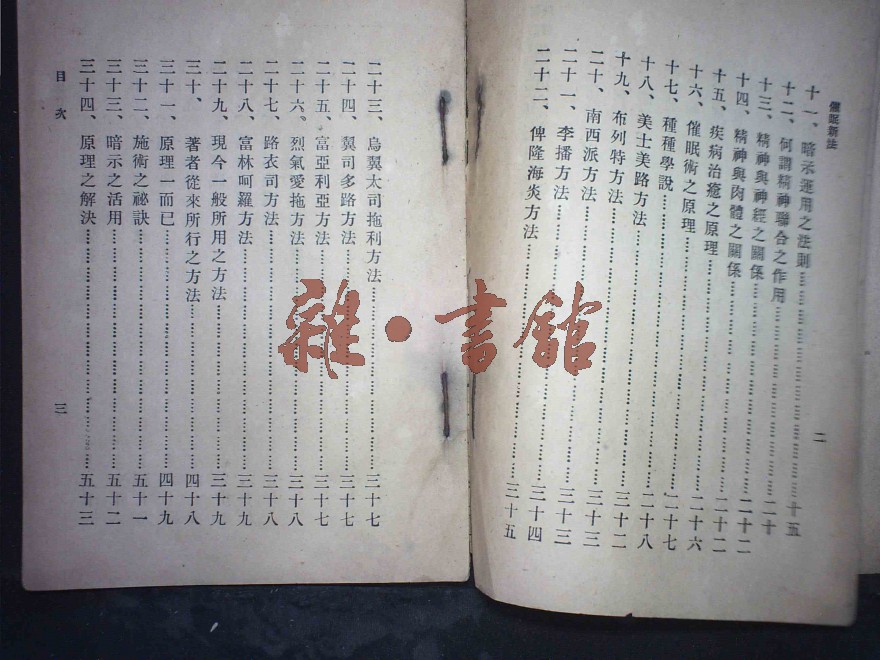 催眠新法
十一、暗示運用之法則……十五
十二、何謂精神聯合之作用……二十
十三、精神與神經之關係……二十二
十四、精神與肉體之關係……二十二
十五、疾病治癒之原理……二十六
十六、催眠術之原理……二十七
十七、種種學說……二十八
十八、美士美路方法……三十二
十九、布列特方法……三十三
二十、南西派方法……三十三
二十一、李播方法……三十四
二十二、俾隆海炎方法……三十五
二
二十三、烏翼太司拖利方法……三十七
二十四、翼司多路方法……三十七
二十五、富亞利亞方法……三十七
二十六、烈氣愛拖方法……三十八
二十七、路衣司方法……三十八
二十八、富林呵羅方法……三十九
二十九、現今一般所用之方法……三十九
三十、著者從來所行之方法……四十八
三十一、原理一而已……四十九
三十二、施術之祕訣……五十一
三十三、暗示之活用……五十二
三十四、原理之解決……五十三
目次
三
雜·書館